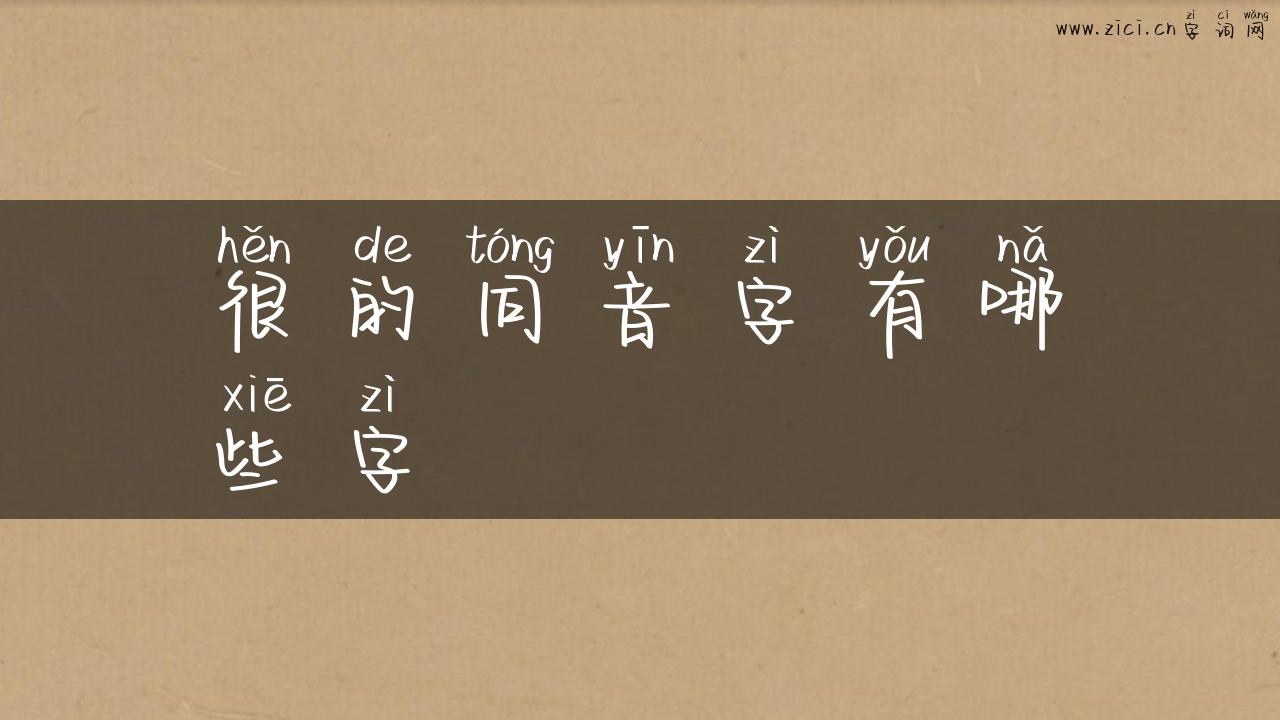 zì cí wǎng
www.zici.cn 字词网
hěn de tóng yīn zì yǒu nǎ
很的同音字有哪
xiē zì
些字